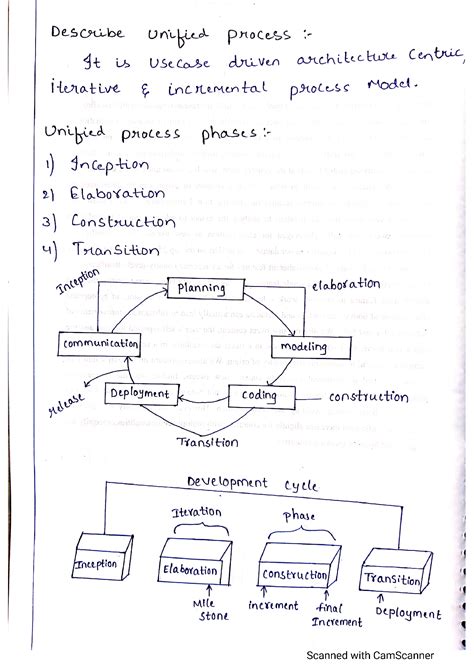 Describe unified process :-
It is usecase driven architecture centric,
iterative & incremental process Model.
Unified process phases :-
1) Inception
2) Elaboration
3) Construction
4) Transition
Inception
planning
elaboration
communication
modeling
Deployment
coding
construction
release
Transition
Development cycle
Iteration
phase
Inception
Elaboration
Construction
Transition
Mile
Stone
increment
final
Increment
Deployment
Scanned with CamScanner